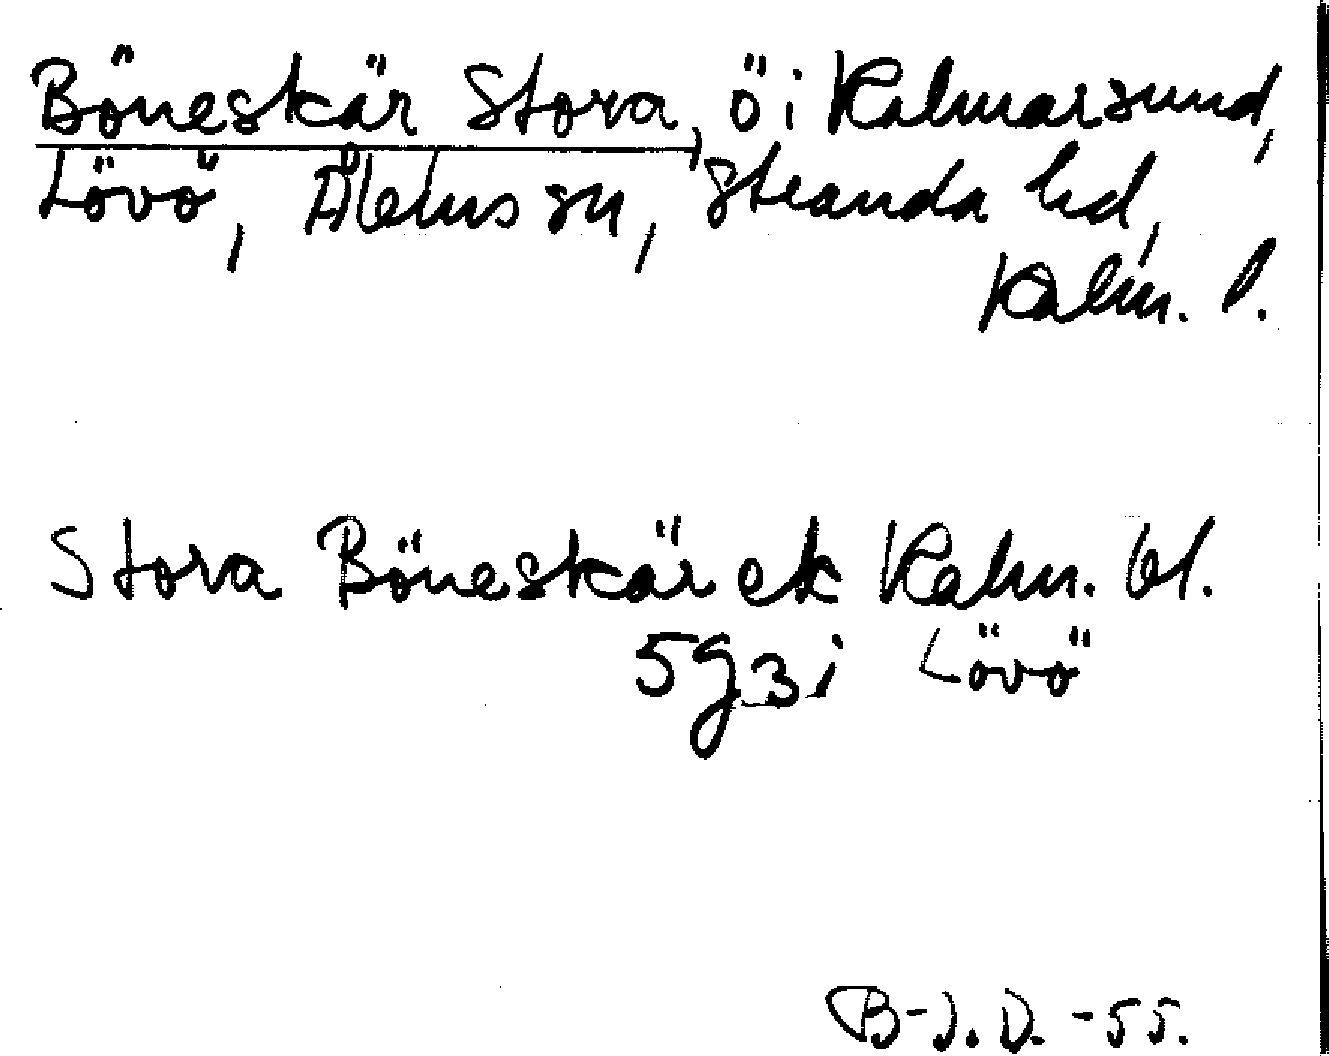 Böneskär Stora, ö i Kalmarsund,
Lövö, Ålems sn, Stranda hd,
Kalm. l.
Stora Böneskär ek Kalm. bl.
5g3i Lövö
B-J.D. -55.